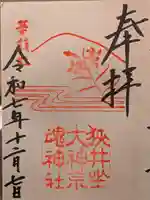 奉拝
狭井坐
大神荒
魂神社
令和七年十二月七日